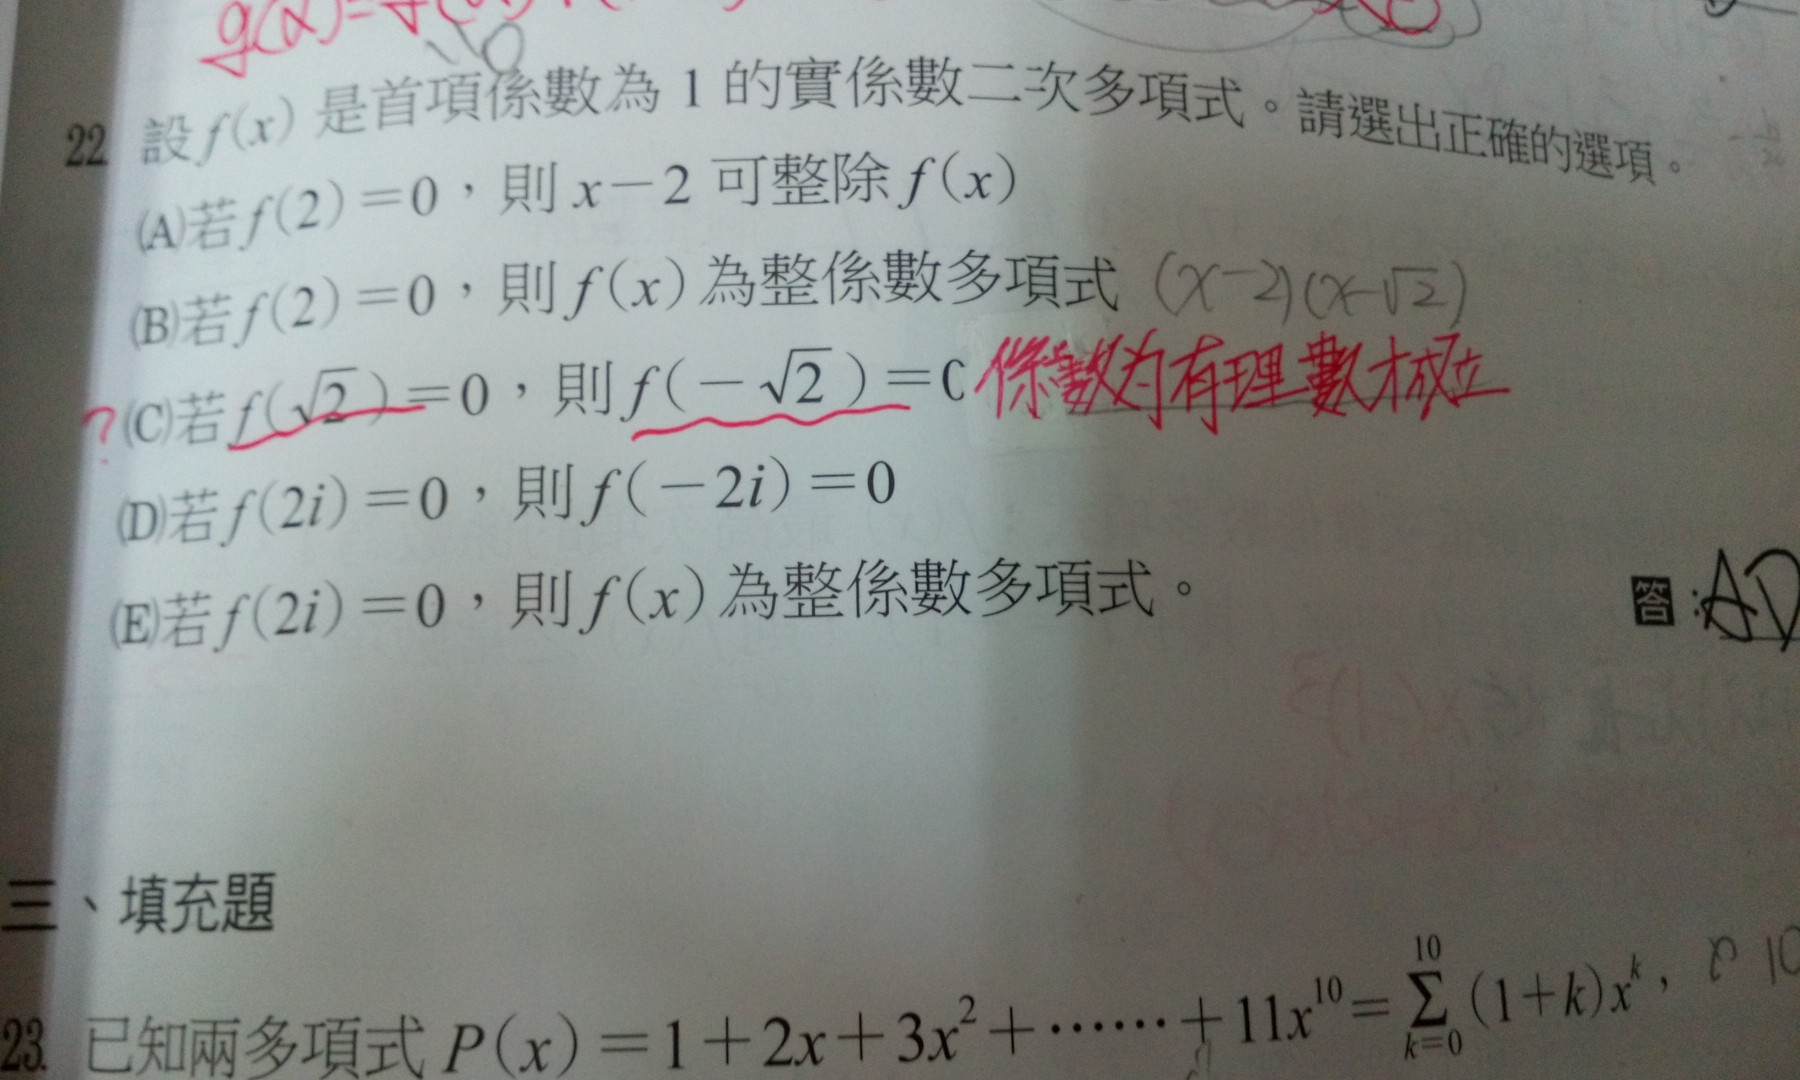 22 設f(x)是首項係數為1的實係數二次多項式。請選出正確的選項。
(A)若f(2)=0，則x−2可整除f(x)
(B)若f(2)=0，則f(x)為整係數多項式 (x−2)(x−√2)
?(C)若f(√2)=0，則f(−√2)=0 係數为有理數才成立
(D)若f(2i)=0，則f(−2i)=0
(E)若f(2i)=0，則f(x)為整係數多項式。
答:AD
三、填充題
23. 已知兩多項式P(x)=1+2x+3x²+⋯⋯+11x¹⁰=∑(k=0→10)(1+k)xᵏ，